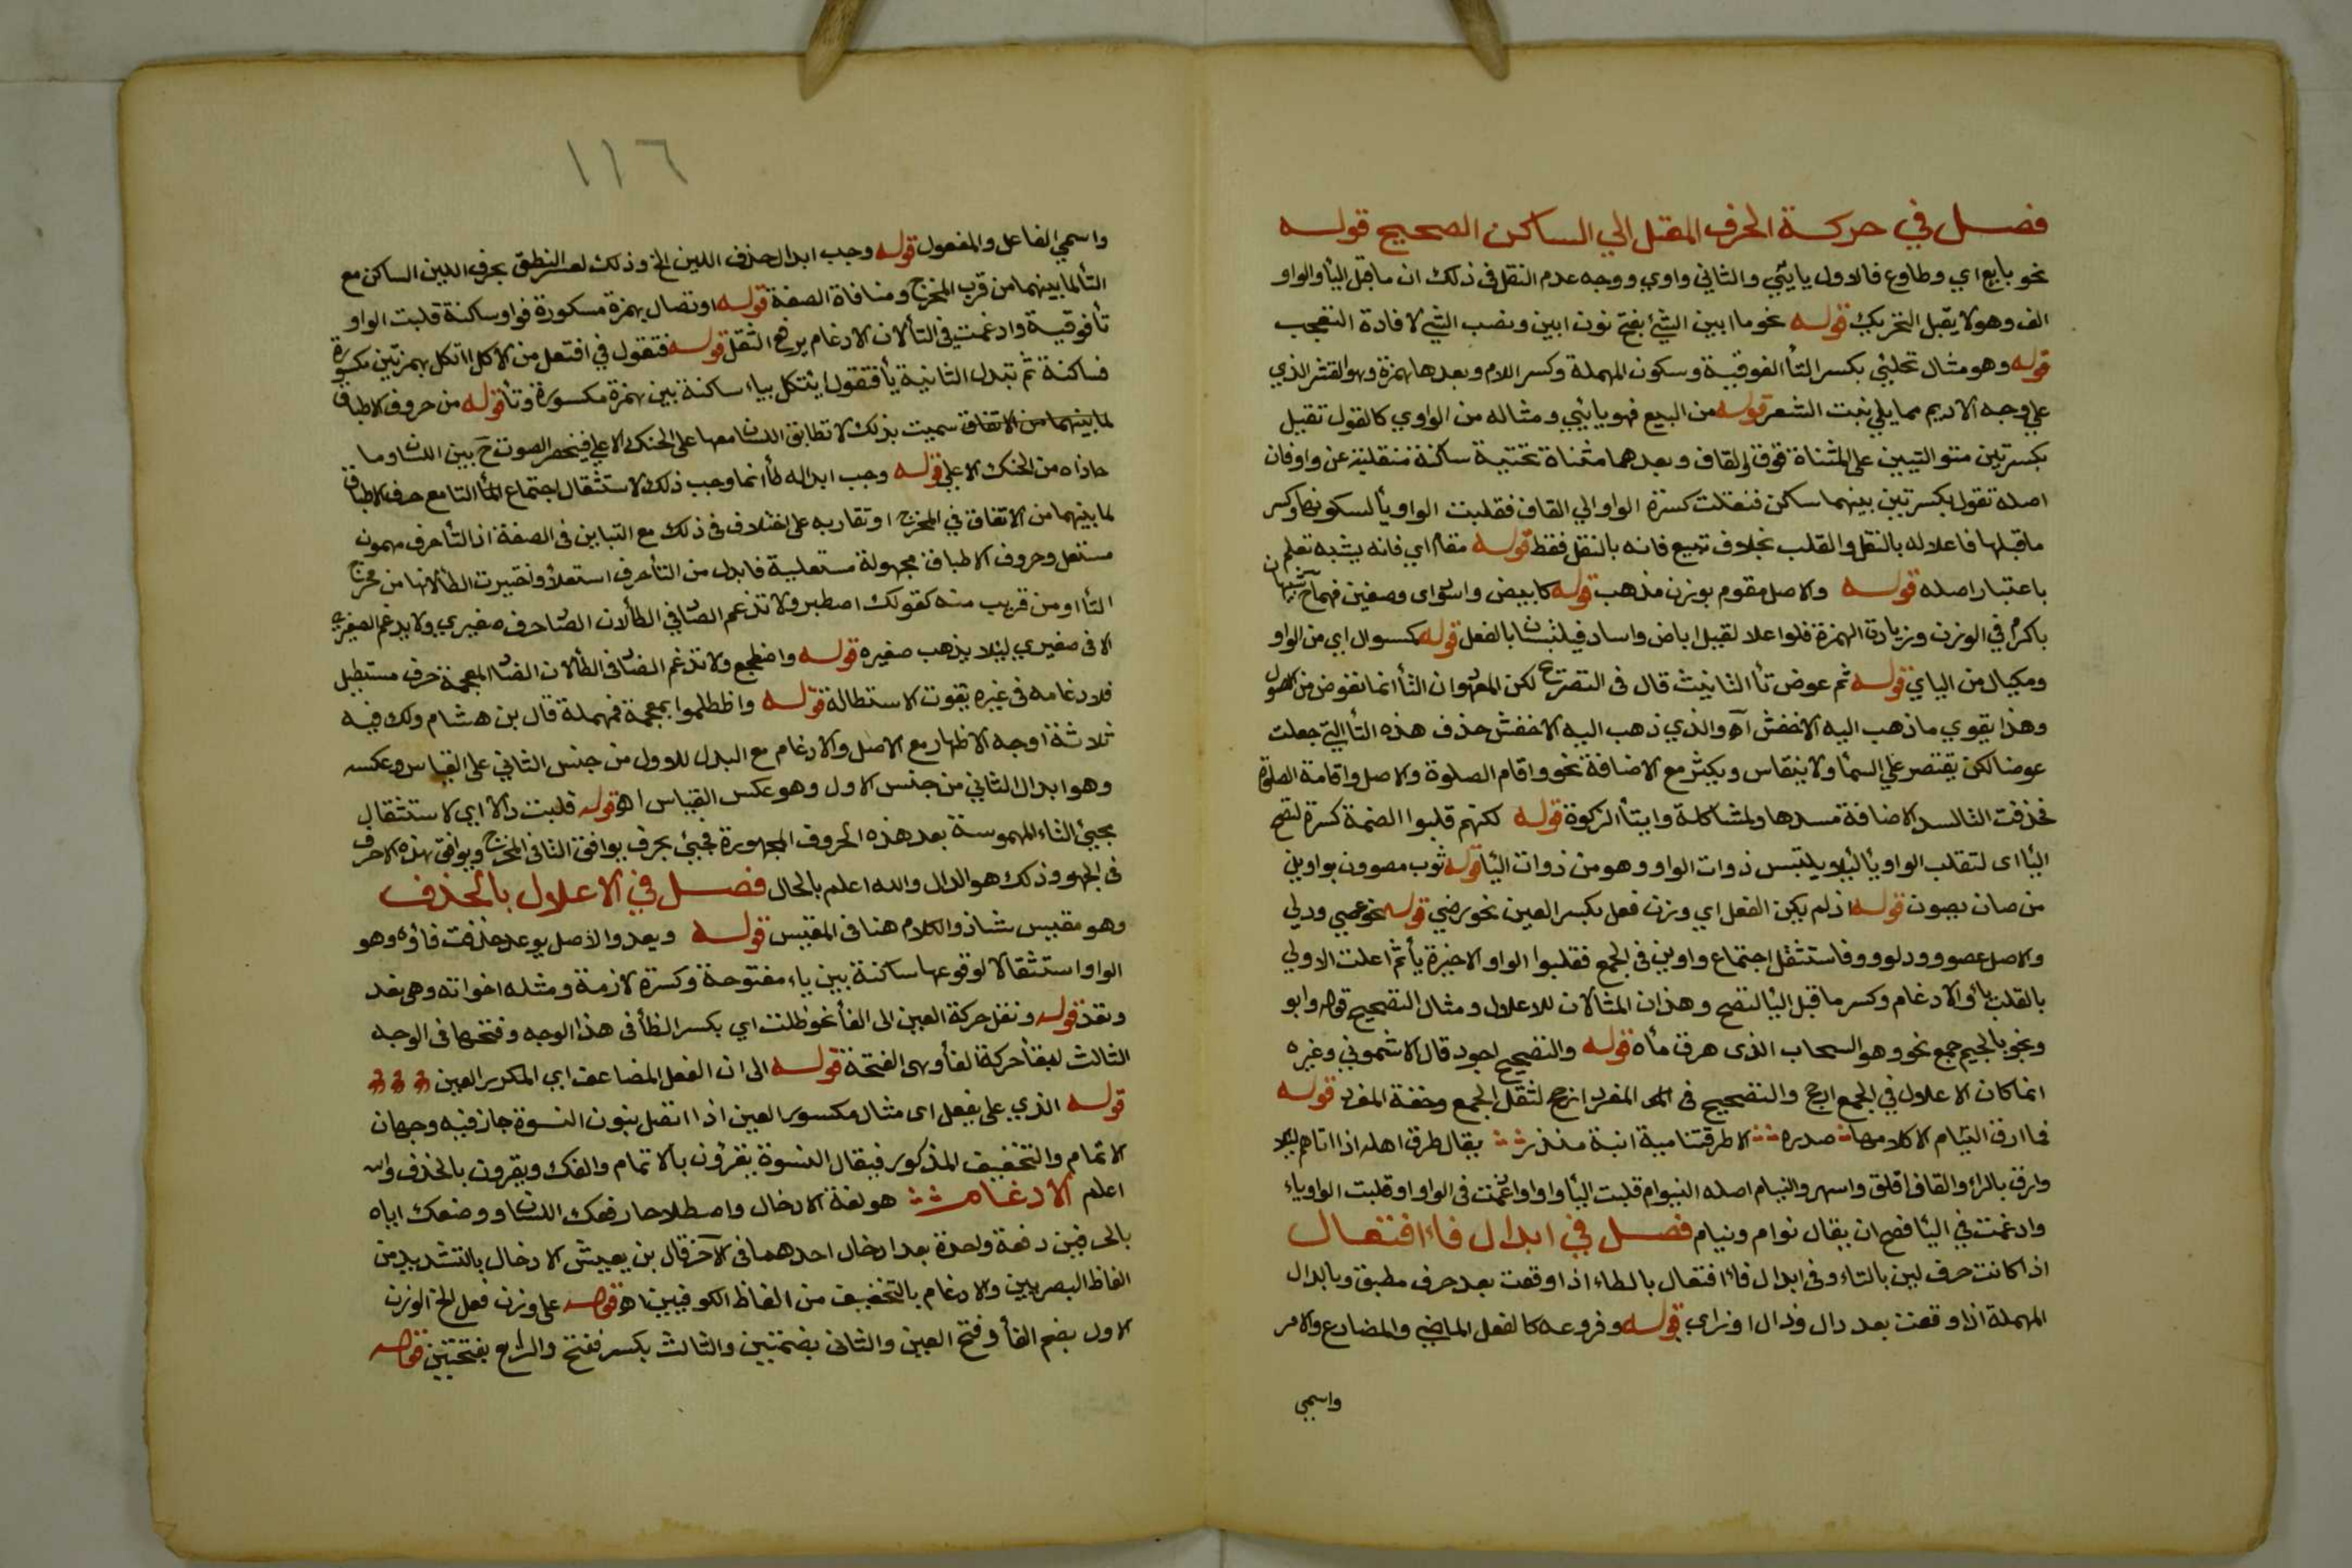 فصل في حركة الحرف المعتل الي الساكن الصحيح قوله
نحو بايع اي وطاوع فالاول يايئي والثاني واوي ووجه عدم النقل في ذلك ان ماقبل اليأ والواو
الف وهو لا يقبل التحريك قوله نحو ما ابين الشئ بفتح نون ابين ونصب الشي لافادة التعجب
قوله وهو مثال تحلئي بكسر التأ الفوقية وسكون المهملة وكسر اللام وبعدها همزة وهو القشر الذي
علي وجه الاديم مما يلي نبت الشعر قوله من البيع فهو يايئي ومثاله من الواوي كالقول تقيل
بكسرتين متواليتين علي المثناة فوق والقاف وبعدهما مثناة تحتية ساكنة منقلبة عن واو فان
اصله تقول بكسرتين بينهما ساكن فنقلت كسرة الواو الي القاف فقلبت الواو يأ لسكونها وكسر
ماقبلها فاعلاله بالنقل والقلب بخلاف تبيع فانه بالنقل فقط قوله مقام اي فانه يشبه تعلم
باعتبار اصله قوله والاصل مقوم بوزن مذهب قوله كابيض واسود اي وصفين فهما ح شبيهان
باكرم في الوزن وزيادة الهمزة فلو اعلا لقيل اباض واساد فيلتبسان بالفعل قوله كمسوال اي من الواو
ومكيال من الياي قوله ثم عوض تأ التانيث قال في التصريح لكن المعهود ان التأ انما تعوض من الاصول
وهذا يقوي ماذهب اليه الاخفش اه والذي ذهب اليه الاخفش حذف هذه التأ التي جعلت
عوضا لكن يقتصر علي السمأ ولا ينقاس ويكثر مع الاضافة نحو واقام الصلوة والاصل واقامة الصلوة
فحذفت التأ لسد الاضافة مسدها ولمشاكلة وايتأ الزكوة قوله لكنهم قلبوا الضمة كسرة لتصح
اليأ اي لتقلب الواو يأ ليلا يلتبس ذوات الواو وهو من ذوات اليأ قوله ثوب مصوون بواوين
من صان يصون قوله اذ لم يكن الفعل اي وزن فعل بكسر العين نحو رضي قوله نحو عصي ودلي
والاصل عصوو ودلوو فاستثقل اجتماع واوين في الجمع فقلبوا الواو الاخيرة يأ ثم اعلت الاولي
بالقلب يأ والادغام وكسر ماقبل اليأ لتصح وهذان المثالان للاعلال ومثال التصحيح قوله وابو
ونجو بالجيم جمع نجو وهو السحاب الذي هرق مأه قوله والتصحيح اجود قال الاشموني وغيره
انما كان الاعلال في الجمع ارجح والتصحيح في المفرد ارجح لثقل الجمع وخفة المفرد قوله
فما ارق النيام الا كلامها صدره الا طرقتنا مية ابنة منذر يقال طرق اهله اذا اتاهم ليلا
وارق بالراء والقاف اقلق واسهر والنيام اصله النيوام قلبت اليأ واوا وادغمت في الواو او قلبت الواو ياء
وادغمت في اليأ فصح ان يقال نوام ونيام فصل في ابدال فاء افتعال
اذا كانت حرف لين بالتاء وفي ابدال فاء افتعال بالطاء اذا وقعت بعد حرف مطبق وبابدال
المهملة اذا وقعت بعد دال وذال او زاي قوله وفروعه كالفعل الماضي والمضارع والامر
واسمي
١١٦
واسمي الفاعل والمفعول قوله وجب ابدال حذف اللين الخ وذلك لعسر النطق بحرف اللين الساكن مع
التأ لما بينهما من قرب المخرج ومنافاة الصفة قوله اوتصال بهمزة مسكورة فواو ساكنة قلبت الواو
تأ فوقية وادغمت في التأ لان الادغام يرفع الثقل قوله فتقول في افتعل من الاكل ااتكل بهمزتين مكسورة
فساكنة ثم تبدل الثانية يأ فتقول ايتكل بياء ساكنة بين همزة مكسورة وتأ قوله من حروف الاطباق
لما بينهما من الاتفاق سميت بذلك لاتطابق اللسان معها علي الحنك الاعلي فينحصر الصوت ح بين اللسان وما
حاذاه من الحنك الاعلي قوله وجب ابداله طأ انما وجب ذلك لاستثقال اجتماع التا مع حرف الاطباق
لما بينهما من الاتفاق في المخرج او تقاربه علي اختلاف في ذلك مع التباين في الصفة اذ التأ حرف مهموس
مستفل وحروف الاطباق مجهولة مستعلية فابدل من التأ حرف استعلأ واختيرت الطأ لانها من مخرج
التأ او من قريب منه كقولك اصطبر ولا تدغم الصاد في الطأ لان الصاد حرف صفيري ولا يدغم الصفيري
الا في صفيري ليلا يذهب صفيره قوله واضطجع ولا تدغم الضاد في الطأ لان الضاد المعجمة حرف مستطيل
فلا دغامه في غيره يفوت الاستطالة قوله واظطلموا بمعجمة فمهملة قال بن هشام ولك فيه
ثلاثة اوجه الاظهار مع الاصل والادغام مع البدل للاول من جنس الثاني علي القياس وعكسه
وهو ابدال الثاني من جنس الاول وهو عكس القياس اه قوله قلبت دالا اي لاستثقال
بجيئ التاء المهموسة بعد هذه الحروف المجهورة فجيئ بحرف يوافق التا في المخرج ويوافق هذه الاحرف
في الجهر وذلك هو الدال والله اعلم بالحال فصل في الاعلال بالحذف
وهو مقيس شاذ والكلام هنا في المقيس قوله ويعد والاصل يوعد حذفت فاؤه وهو
الواو استثقالا لوقوعها ساكنة بين ياء مفتوحة وكسرة لازمة ومثله اخواته وهي نعد
وتعد قوله ونقل حركة العين الي الفأ نحو ظلت اي بكسر الظأ في هذا الوجه وفتحها في الوجه
الثالث لبقأ حركة الفأ وهي الفتحة قوله الي ان الفعل المضاعف اي المكرر العين
قوله الذي علي يفعل اي مثال مكسور العين اذا اتصل بنون النسوة جاز فيه وجهان
الاتمام والتخفيف المذكور فيقال النسوة يقررن بالاتمام والفك ويقرن بالحذف والله
اعلم الادغام هو لغة الادخال واصطلاحا رفعك اللسان ووضعك اياه
بالحرفين دفعة واحدة بعد ادخال احدهما في الآخر قال بن يعيش الادخال بالتشديد من
الفاظ البصريين والادغام بالتخفيف من الفاظ الكوفيين اه قوله علي وزن فعل الخ الوزن
الاول بضم الفأ وفتح العين والثاني بضمتين والثالث بكسر ففتح والرابع بفتحتين قوله